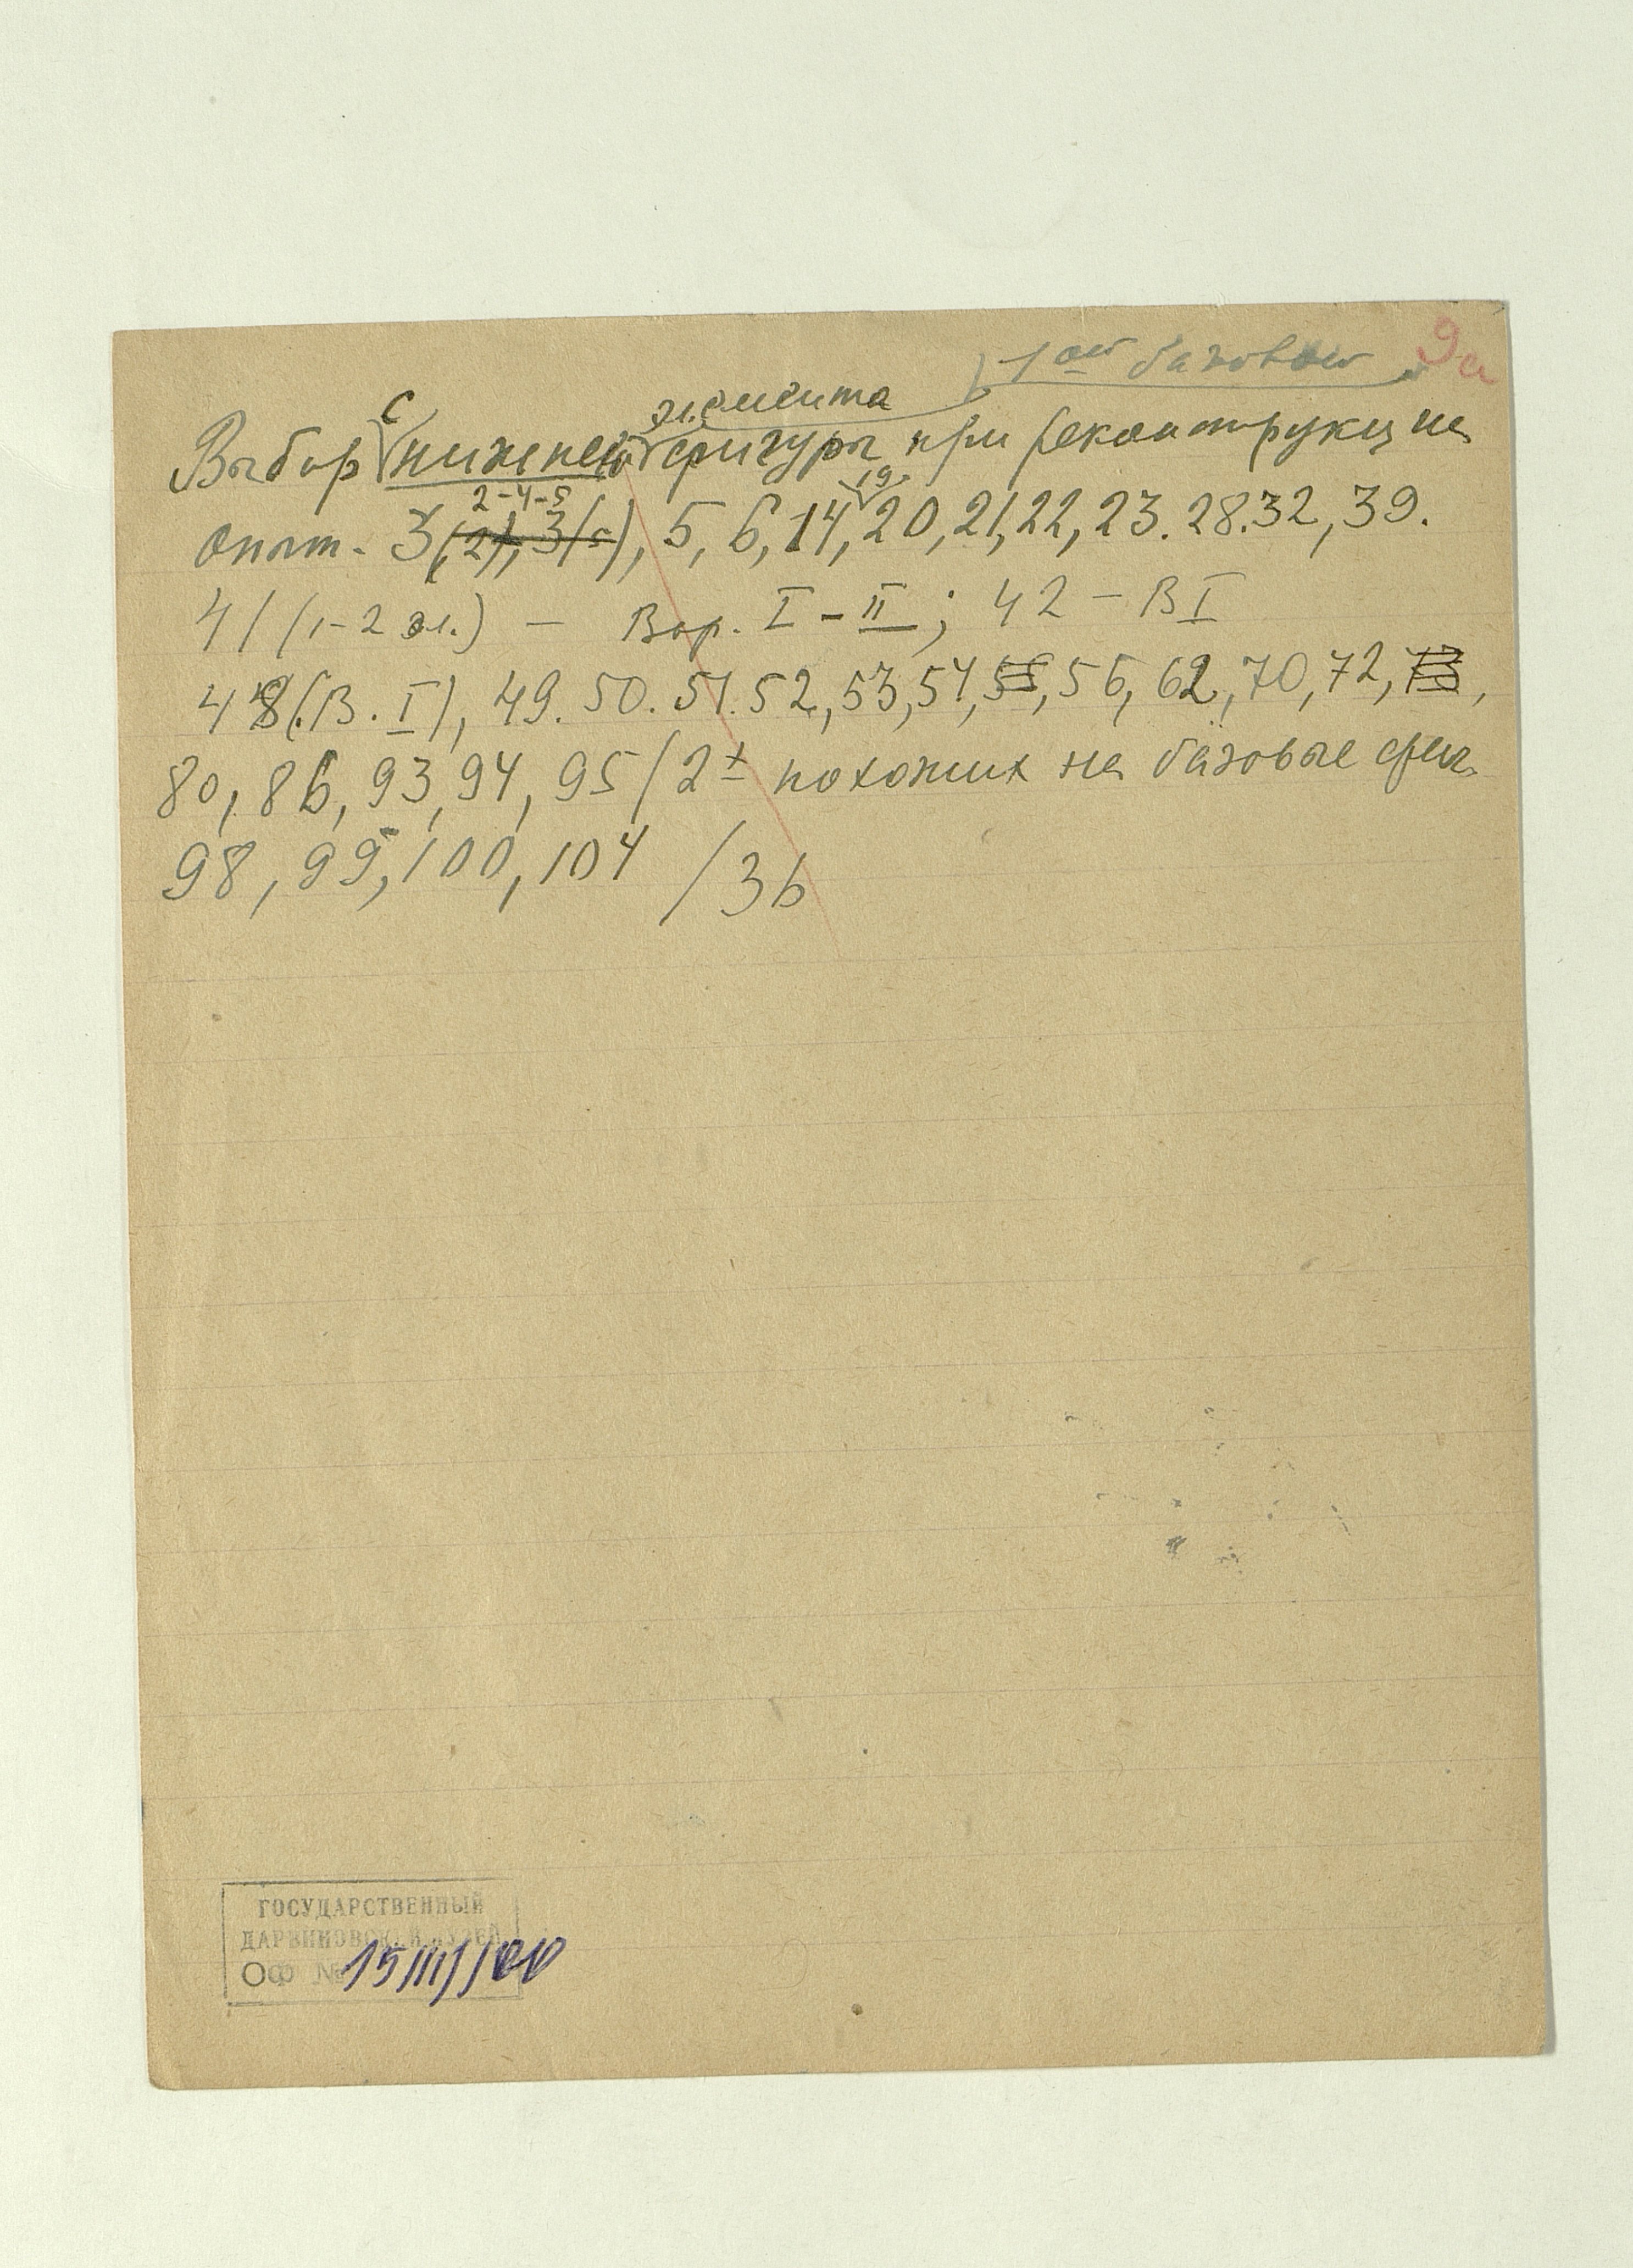 1ой базовой 9а
с элемента
Выбор нижней фигуры при реконструкции
2-4-5 19
опыт. 3(2), 3(5), 5, 6, 14, 20, 21, 22, 23. 28. 32, 39.
41 (1-2 эл.) — Вар. I - II; 42 - В I
48 (В. I), 49. 50. 51. 52, 53, 54, 55, 56, 62, 70, 72, 73,
80, 86, 93, 94, 95 / 2х похожих на базовые фиг.
98, 99, 100, 104 /36
ГОСУДАРСТВЕННЫЙ
ДАРВИНОВСКИЙ МУЗЕЙ
ОФ №